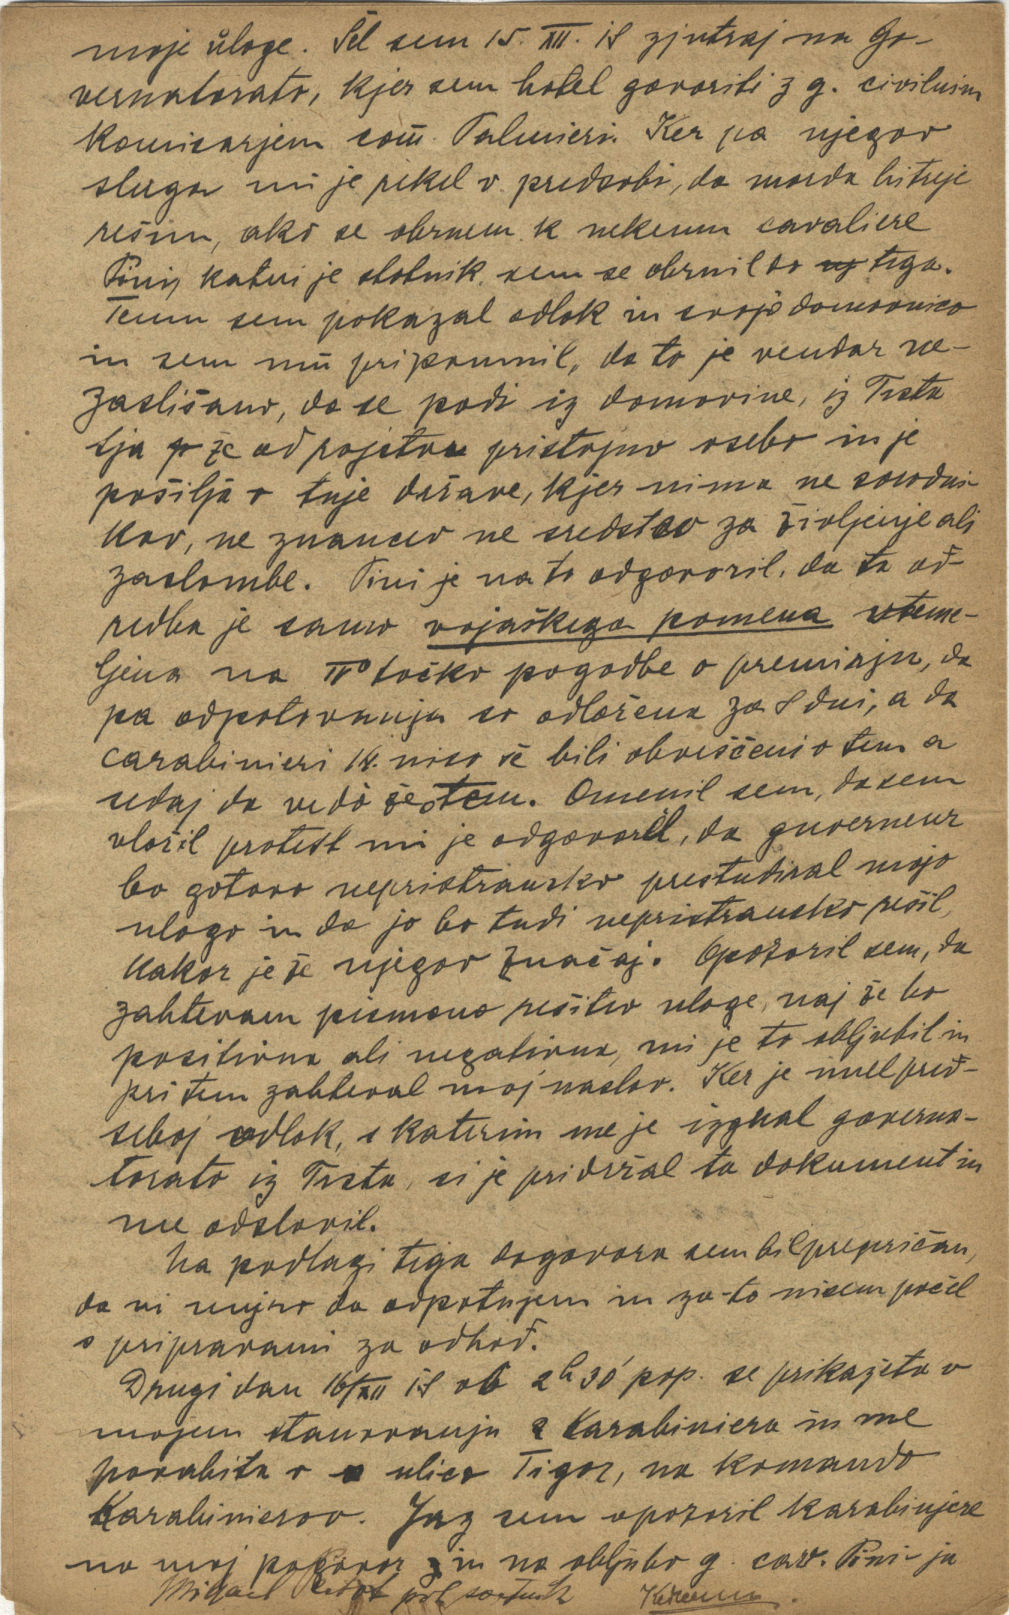 moje uloge. Šel sem 15. XII. 18 zjutraj na Go-
vernatorato, kjer sem hotel govoriti z g. civilnim
komisarjem com. Palmieri. Ker pa njegov
sluga mi je rekel v predsobi, da morda hitreje
rešim, ako se obrnem k nekemu cavaliere
Pini, kateri je stotnik, sem se obrnil do tega.
Temu sem pokazal odlok in svojo domovnico
in sem mu pripomnil, da to je vendar ne-
zaslišano, da se podi iz domovine, iz Trsta
tja že od rojstva pristojno osebo in je
pošilja v tuje države, kjer nima ne sorodni-
kov, ne znancev ne sredstev za življenje ali
zaslombe. Pini je na to odgovoril, da ta od-
redba je samo vojaškega pomena uteme-
ljena na IVo točko pogodbe o premirju, da
pa odpotovanja so odložena za 8 dni, a da
carabinieri 14. niso še bili obveščeni o tem a
sedaj da vedo že o tem. Omenil sem, da sem
vložil protest mi je odgovoril, da guverneur
bo gotovo nepristransko prestudiral mojo
ulogo in da jo bo tudi nepristransko rešil,
kakor je že njegov značaj. Opozoril sem, da
zahtevam pismeno rešitev uloge, naj še bo
positivna ali negativna, mi je to obljubil in
pri tem zahteval moj naslov. Ker je imel pred-
seboj odlok, s katerim me je izgnal governa-
torato iz Trsta, si je pridržal ta dokument in
me odslovil.
Na podlagi tega dogovora sem bil prepričan,
da ni nujno da odpotujem in za-to nisem počel
s pripravami za odhod.
Drugi dan 16/XII 18 ob 2h 30' pop. se prikažeta v
mojem stanovanju 2 karabiniera in me
povabita v ulico Tigor, na komando
Karabinierov. Jaz sem opozoril karabinjere
na moj pogovor in na obljubo g. cav. Pini-ja